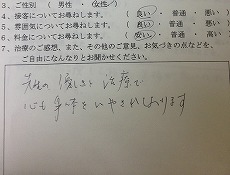 3、ご性別 ( 男性 ・ 女性 )
4、接客についてお尋ねします。 ( 良い ・ 普通 ・ 悪い )
5、雰囲気についてお尋ねします。 ( 良い ・ 普通 ・ 悪い )
6、料金についてお尋ねします。 ( 安い ・ 普通 ・ 高い )
7、治療のご感想、また、その他のご意見、お気づきの点などを、
ご自由になんなりとお聞かせください。
先生の優しさと治療で
心も身体もいやされております